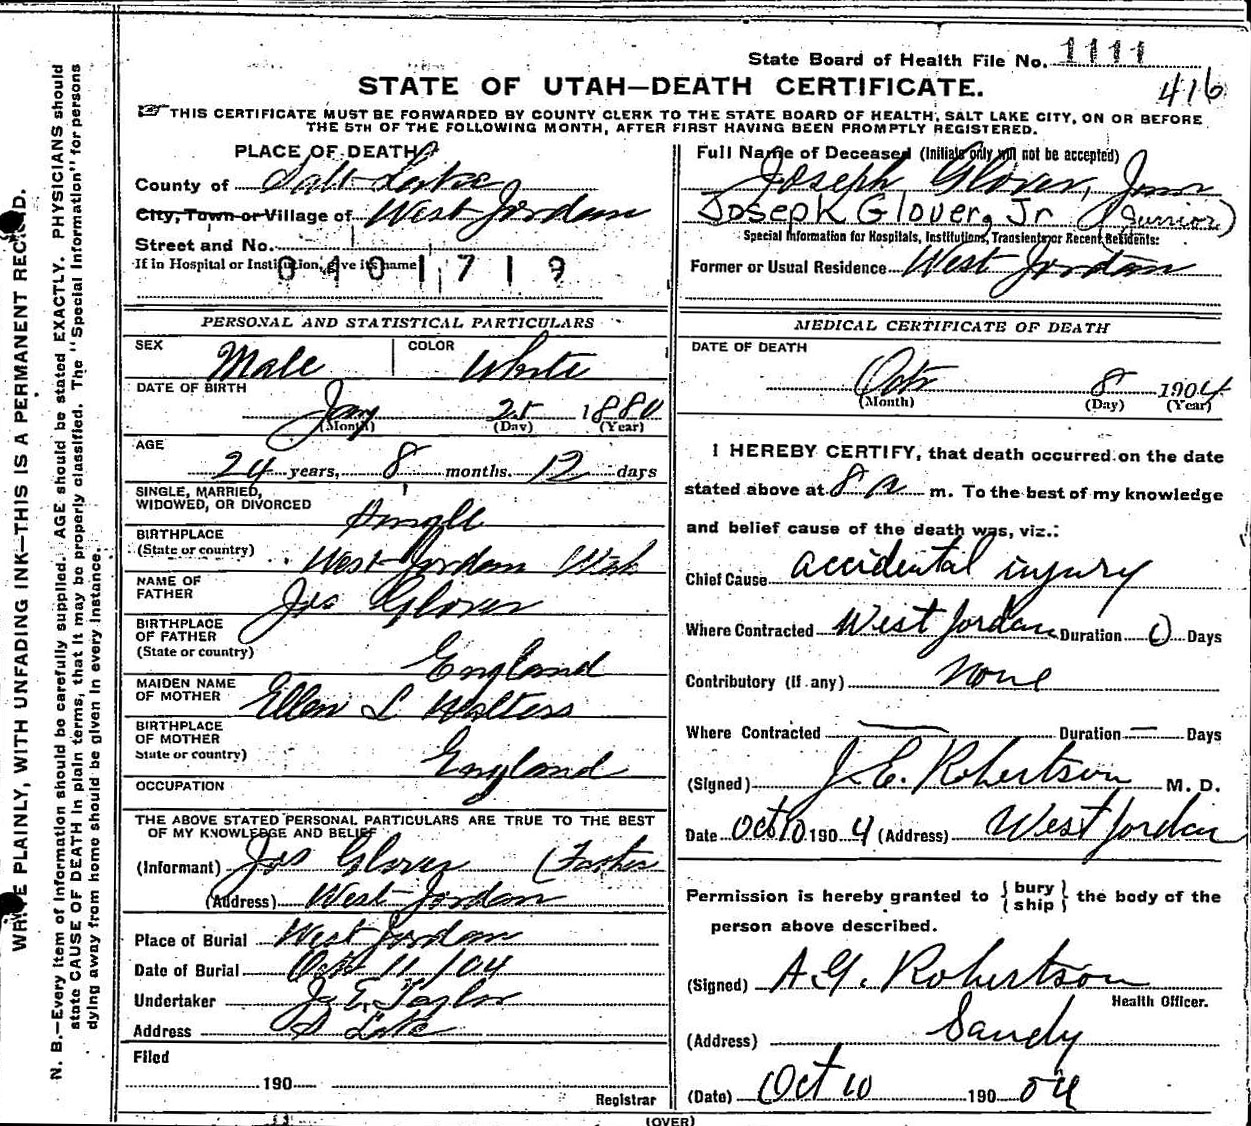 State Board of Health File No. 1111
416
STATE OF UTAH—DEATH CERTIFICATE.
THIS CERTIFICATE MUST BE FORWARDED BY COUNTY CLERK TO THE STATE BOARD OF HEALTH, SALT LAKE CITY, ON OR BEFORE
THE 5TH OF THE FOLLOWING MONTH, AFTER FIRST HAVING BEEN PROMPTLY REGISTERED.
PLACE OF DEATH
County of Salt Lake
City, Town or Village of West Jordan
Street and No.
If in Hospital or Institution, give its name
0401719
PERSONAL AND STATISTICAL PARTICULARS
SEX Male COLOR White
DATE OF BIRTH
Jan 25 1880
(Month) (Day) (Year)
AGE
24 years, 8 months. 12 days
SINGLE, MARRIED,
WIDOWED, OR DIVORCED Single
BIRTHPLACE
(State or country) West Jordan Utah
NAME OF
FATHER Jos Glover
BIRTHPLACE
OF FATHER
(State or country) England
MAIDEN NAME
OF MOTHER Ellen L Walters
BIRTHPLACE
OF MOTHER
State or country) England
OCCUPATION
THE ABOVE STATED PERSONAL PARTICULARS ARE TRUE TO THE BEST
OF MY KNOWLEDGE AND BELIEF
(Informant) Jos Glover (Father
(Address) West Jordan
Place of Burial West Jordan
Date of Burial Oct 11/04
Undertaker Jos E. Taylor
Address S Lake
Filed
190
Registrar
Full Name of Deceased (Initials only will not be accepted)
Joseph Glover, Junr
Joseph Glover, Jr (Junior)
Special Information for Hospitals, Institutions, Transients or Recent Residents:
Former or Usual Residence West Jordan
MEDICAL CERTIFICATE OF DEATH
DATE OF DEATH
Oct 8 1904
(Month) (Day) (Year)
I HEREBY CERTIFY, that death occurred on the date
stated above at 8 a m. To the best of my knowledge
and belief cause of the death was, viz.:
Chief Cause accidental injury
Where Contracted West Jordan Duration 0 Days
Contributory (if any) None
Where Contracted — Duration — Days
(Signed) J. E. Robertson M. D.
Date Oct 10 190 4 (Address) West Jordan
Permission is hereby granted to { bury ship } the body of the
person above described.
(Signed) A. G. Robertson
Health Officer.
(Address) Sandy
(Date) Oct 10 190 04
(OVER)
WRITE PLAINLY, WITH UNFADING INK—THIS IS A PERMANENT RECORD.
N. B.—Every item of information should be carefully supplied. AGE should be stated EXACTLY. PHYSICIANS should
state CAUSE OF DEATH in plain terms, that it may be properly classified. The "Special Information" for persons
dying away from home should be given in every instance.